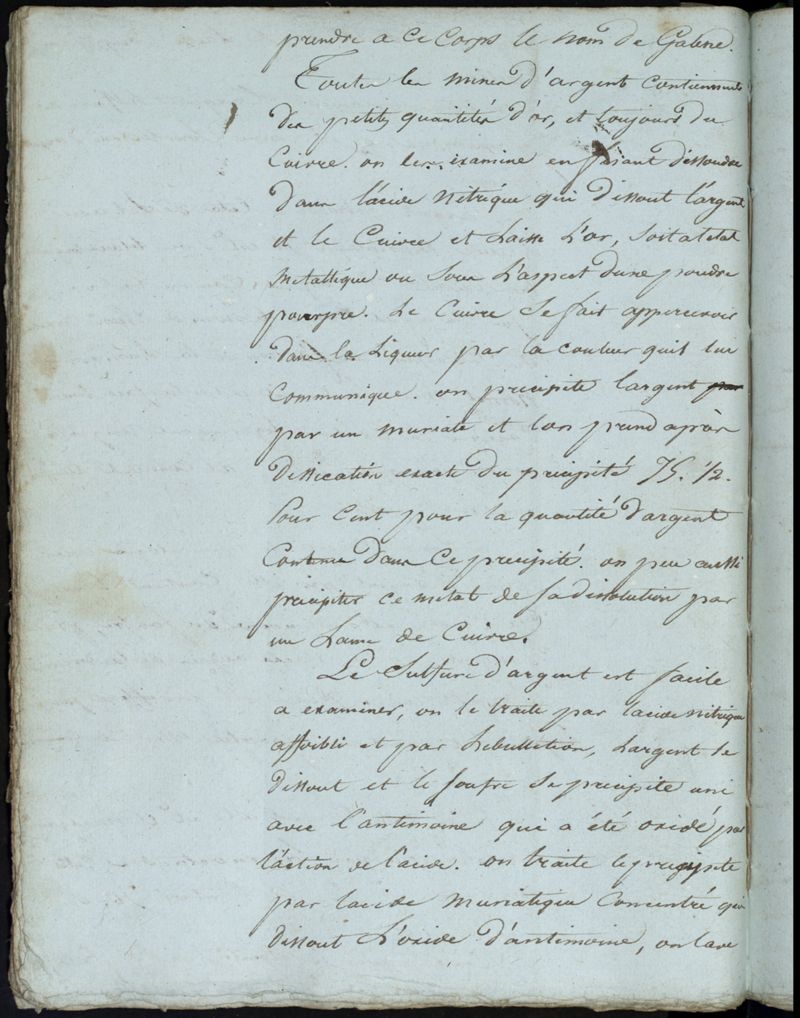 prendre a ce Corps le nom de Galene.
Toutes les mines d'argent contiennent
des petites quantités d'or, et toujours du
Cuivre. on les examine en faisant dissoudre
dans l'acide nitrique qui dissout l'argent
et le Cuivre et laisse l'or, soit a l'etat
metallique ou sous l'aspect d'une poudre
pourpre. Le Cuivre se fait appercevoir
dans la Liqueur par la couleur quil lui
Communique. on precipite largent par
par un muriate et lon prend après
dessication exacte du precipité 75. 1/2.
Pour Cent pour la quantité d'argent
Contenu dans Ce precipité. on peu aussi
precipiter ce metal de sa dissolution par
un Lame de Cuivre.
Le Sulfure d'argent est facile
a examiner, on le traite par lacide nitrique
affoibli et par Lebullition, Largent se
dissout et le soufre se precipite uni
avec l'antimoine qui a été oxidé par
l'action de l'acide. on traite le precipite
par lacide muriatique Concentré qui
dissout L'oxide d'antimoine, on lave